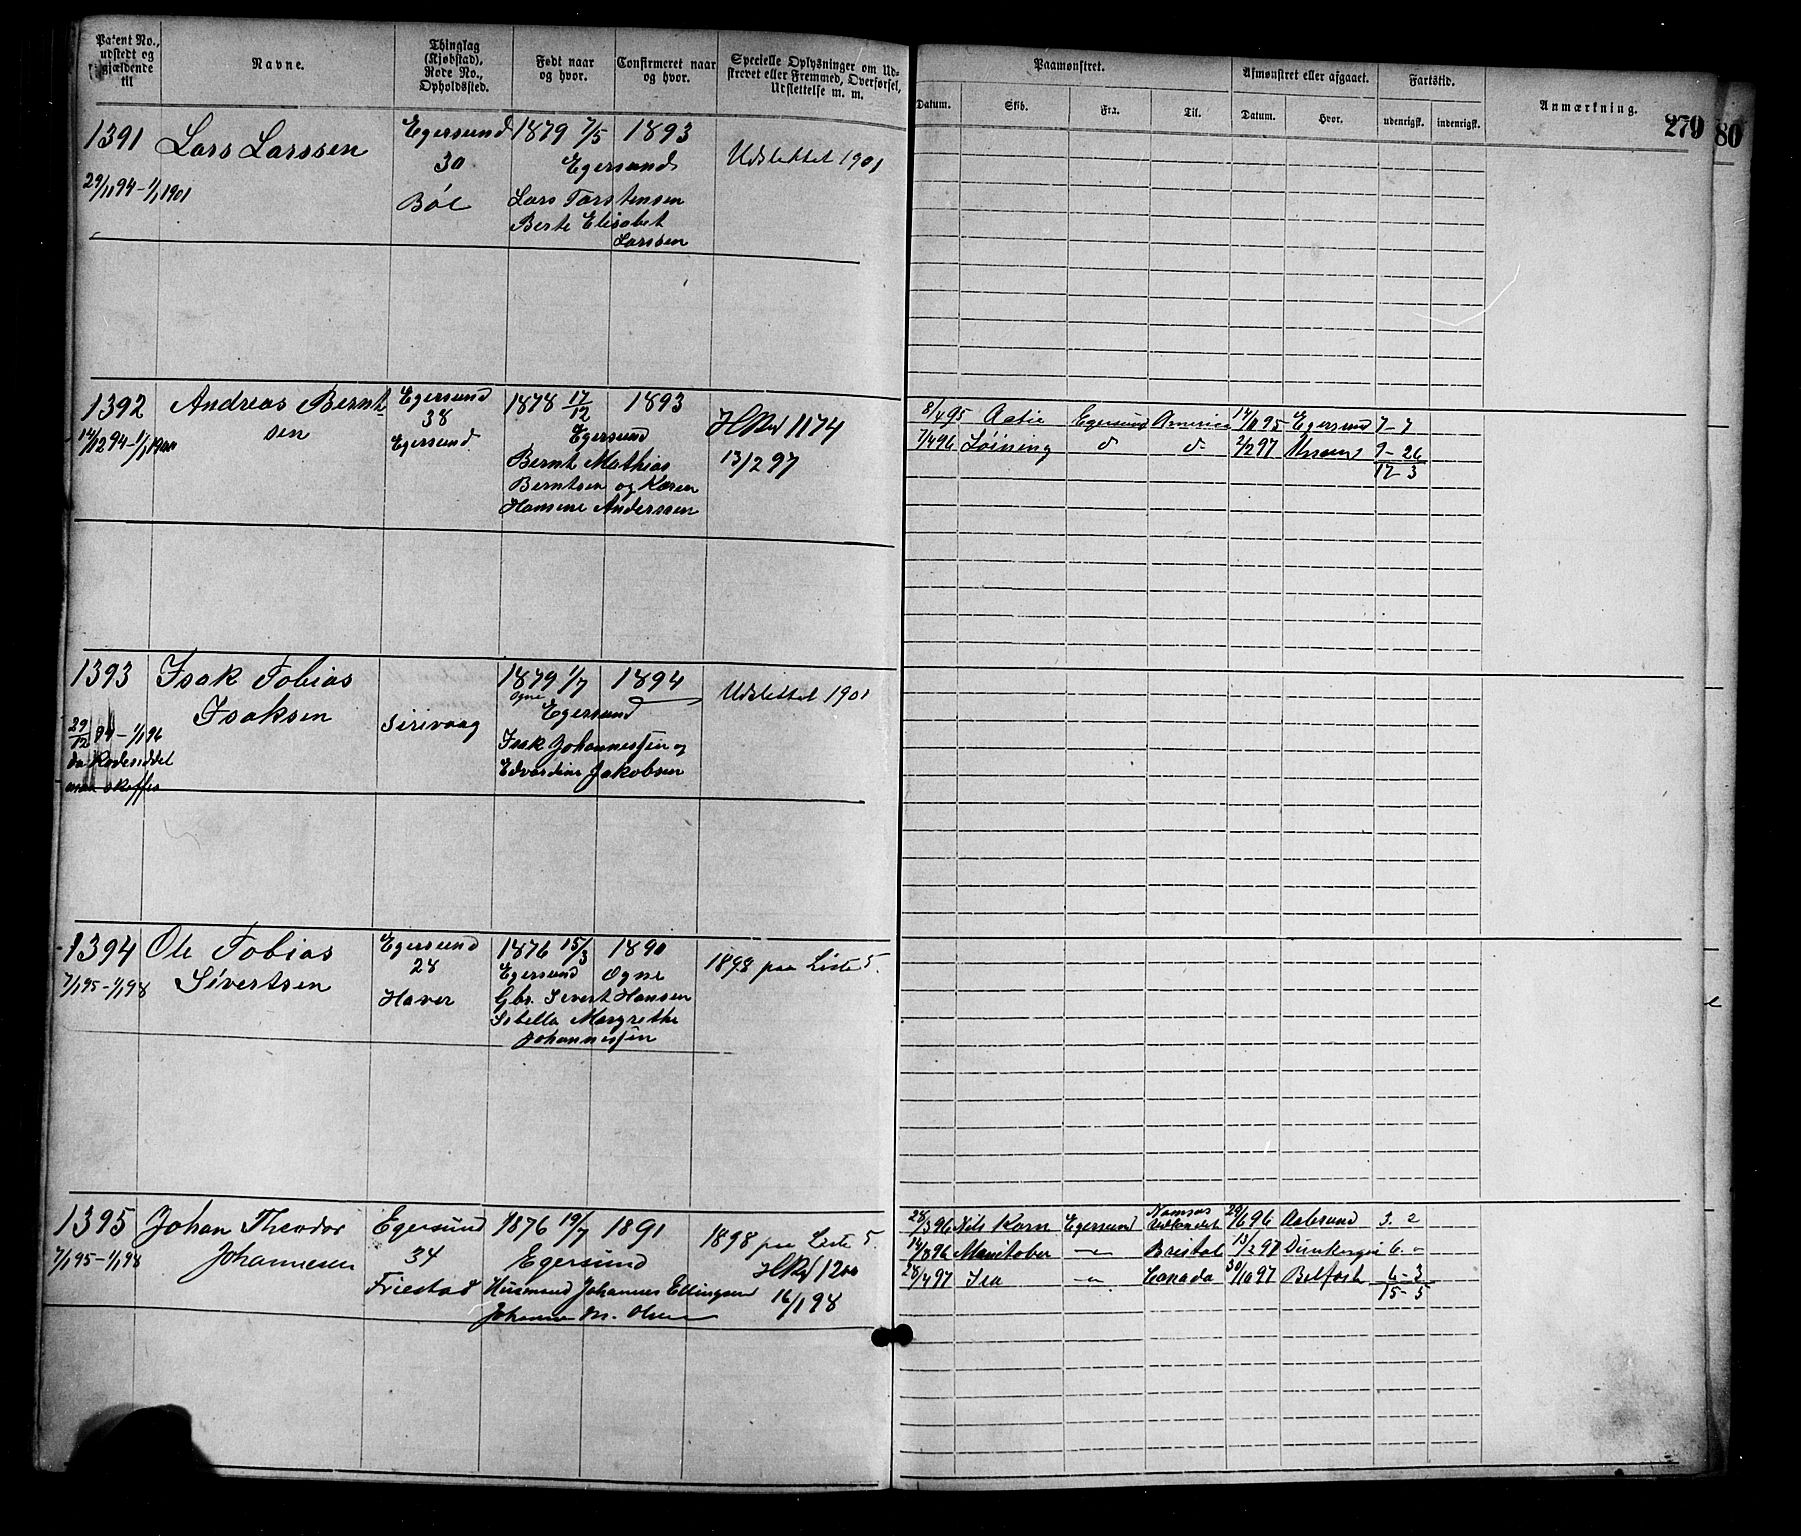 Patent No., udstedt og gjældende til
Navne.
Thinglag (Kjøbstad), Rode No., Opholdssted.
Født naar og hvor.
Confirmeret naar og hvor.
Specielle Oplysninger om Udskrevet eller Fremmed, Overførsel, Udslettelse m. m.
Paamønstret.
Datum. Skib. Fra. Til.
Afmønstret eller afgaaet.
Datum. Hvor.
Fartstid.
udenrigsk. indenrigsk.
Anmærkning.
279
80
1391 Lars Larssen Egersund 1879 7/5 1893
30 Egersund Udslettet 1901
29/11 94 - 1/1 1901 Bøe Lars Torstensen
Berte Elisabet
Larssen
1392 Andreas Berntsen Egersund 1878 17/12 1893
38 Egersund
14/12 94 - 1/1 1900 Egersund
Bernt Mathias
13/2 97
Berntsen og Karen
Hansine Anderssen
8/4 95 Actie Egersund America 14/10 95 Egersund 7-7
7/4 96 Løining d d 2/2 97 9-26
17-3
1393 Isak Tobias 1879 1/7 1894 Udslettet 1901
Isaksen Sirevaag Ogne Egersund
29/12 94 - 1/1 96
Isak Johannessen og
Edvardine Jakobsen
1394 Ole Tobias Egersund 1876 15/3 1890
28 Egersund Ogne 1898 paa Liste 5.
7/1 95 - 1/1 98 Sivertsen Haver Gbr. Sivert Hansen
Sibella Margrethe
Johannessen
1395 Johan Theodor Egersund 1876 19/7 1891
34 1898 paa Liste 5.
7/1 95 - 1/1 98 Johannesen Egersund
Friestad Husmand Johannes Ellingsen 16/1 98
Johanne M. Olsen
28/3 96 Nils Korn Egersund Namsos Udlandet 29/6 96 Aalesund 3. 2
14/8 96 Manitober -"- Bristol 13/2 97 6. -
28/4 97 Isa -"- Canada 30/10 97 Belfast 6-3
15-5